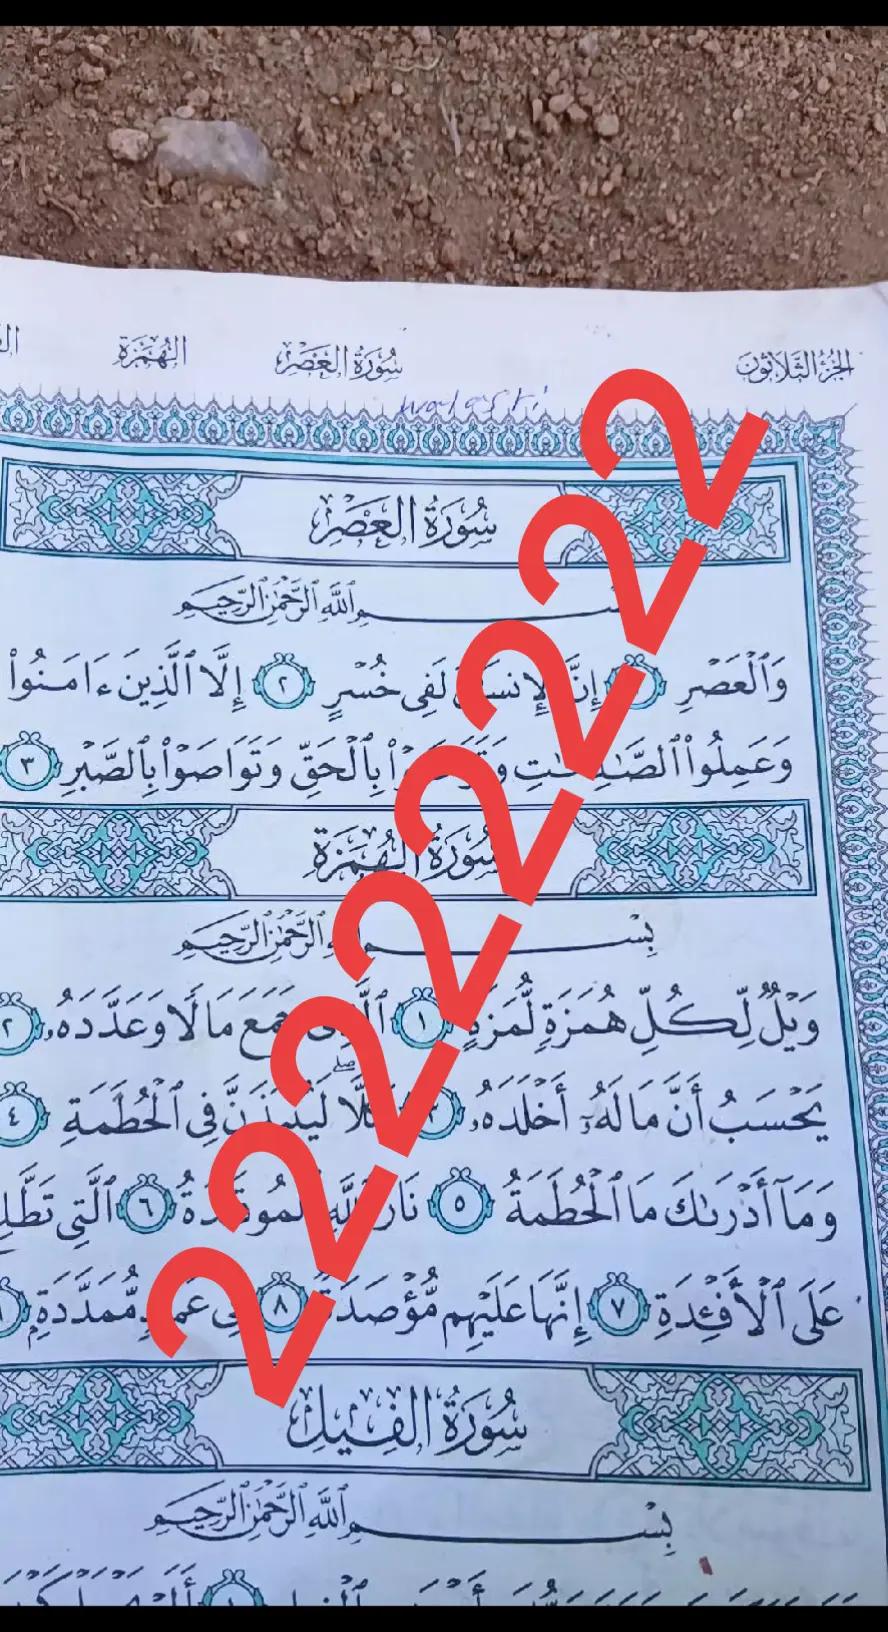 الجزء الثلاثون سورة العصر الهمزة
سُورَةُ العَصْرِ
ٱللَّهِ ٱلرَّحْمَٰنِ ٱلرَّحِيمِ
وَٱلْعَصْرِ إِنَّ ٱلْإِنسَٰنَ لَفِى خُسْرٍ ٢ إِلَّا ٱلَّذِينَ ءَامَنُوا۟
وَعَمِلُوا۟ ٱلصَّٰلِحَٰتِ وَتَوَاصَوْا۟ بِٱلْحَقِّ وَتَوَاصَوْا۟ بِٱلصَّبْرِ ٣
سُورَةُ الهُمَزَةِ
بِسْمِ ٱللَّهِ ٱلرَّحْمَٰنِ ٱلرَّحِيمِ
وَيْلٌ لِّكُلِّ هُمَزَةٍ لُّمَزَةٍ ١ ٱلَّذِى جَمَعَ مَالًا وَعَدَّدَهُۥ ٢
يَحْسَبُ أَنَّ مَالَهُۥٓ أَخْلَدَهُۥ ٣ كَلَّا ۖ لَيُنۢبَذَنَّ فِى ٱلْحُطَمَةِ ٤
وَمَآ أَدْرَىٰكَ مَا ٱلْحُطَمَةُ ٥ نَارُ ٱللَّهِ ٱلْمُوقَدَةُ ٦ ٱلَّتِى تَطَّلِ
عَلَى ٱلْأَفْـِٔدَةِ ٧ إِنَّهَا عَلَيْهِم مُّؤْصَدَةٌ ٨ فِى عَمَدٍ مُّمَدَّدَةٍۭ
سُورَةُ الفِيلِ
بِسْمِ ٱللَّهِ ٱلرَّحْمَٰنِ ٱلرَّحِيمِ
22222222